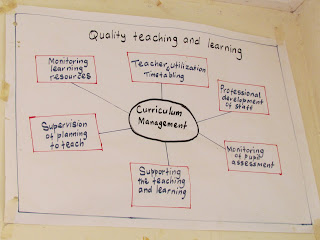 Quality teaching and learning
Monitoring
learning
resources
Teacher utilization
Timetabling
Professional
development
of staff
Curriculum
Management
Supervision
of planning
to teach
Monitoring
of Pupil
assessment
Supporting
the teaching
and learning